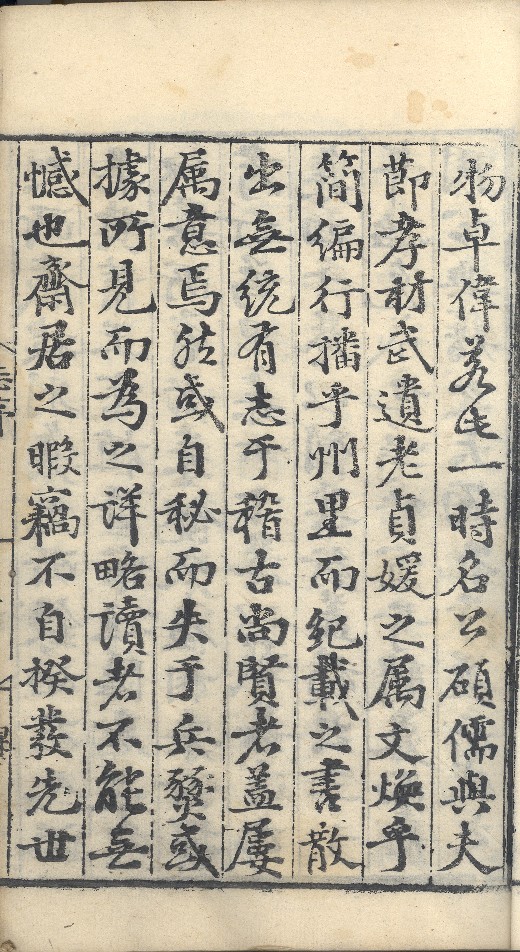 物卓偉若此一時名公碩儒與夫
節孝材武遺老貞媛之属文煥乎
簡編行播乎州里而紀載之書散
出無統有志于稽古尚賢者蓋屢
属意焉然或自秘而失于兵燹或
據所見而為之詳略讀者不能無
憾也齋居之暇竊不自揆發先世